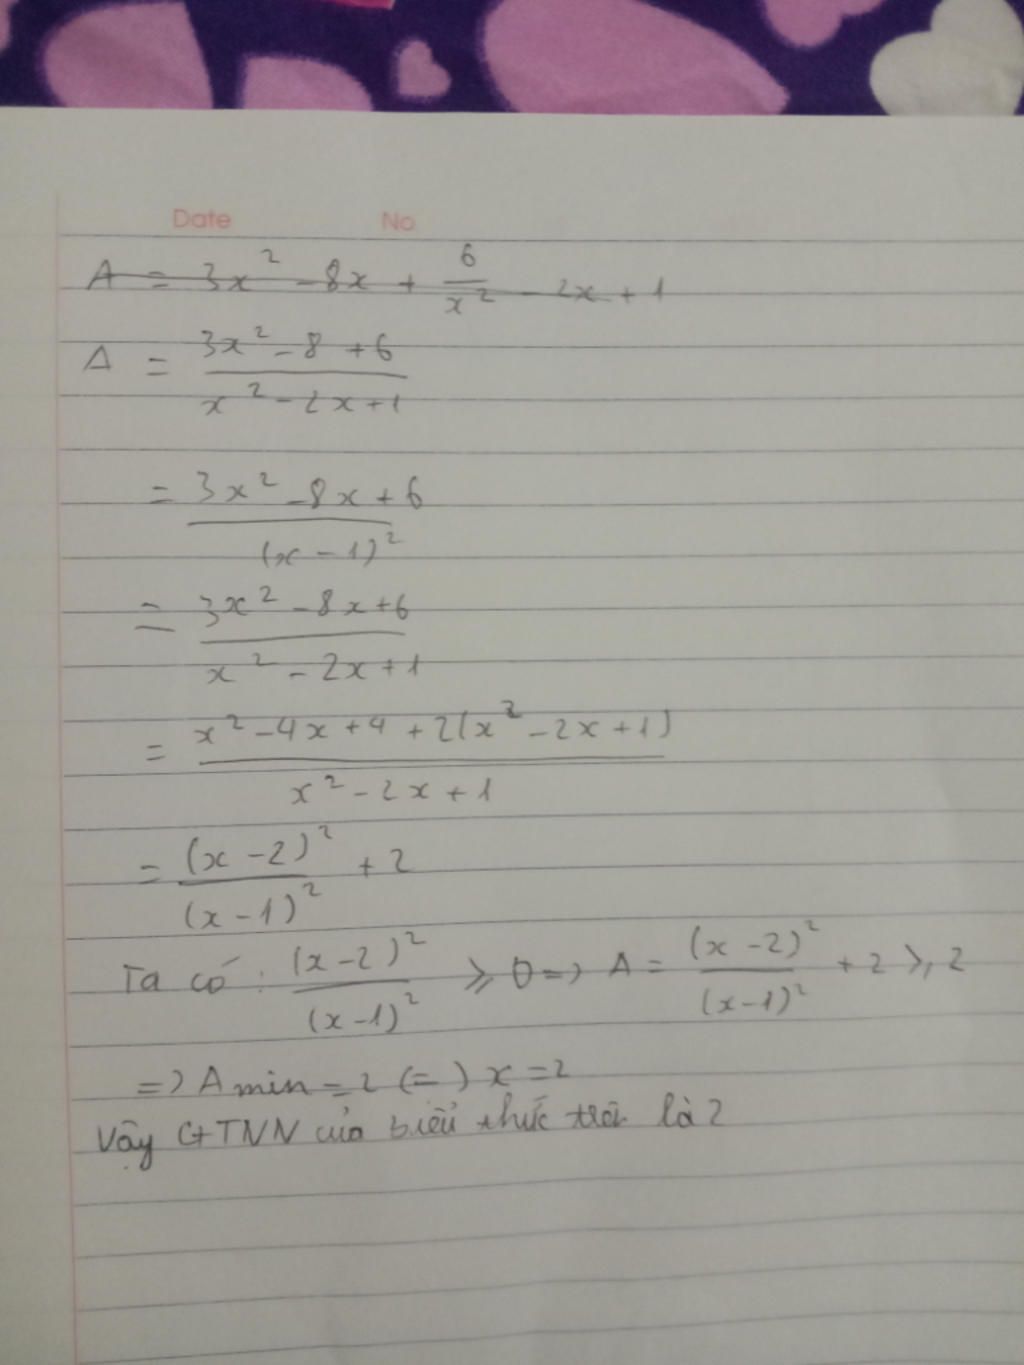 Date No
A = 3x² - 8x + 6/x² - 2x + 1
A = (3x² - 8 + 6)/(x² - 2x + 1)
= (3x² - 8x + 6)/(x - 1)²
= (3x² - 8x + 6)/(x² - 2x + 1)
= (x² - 4x + 4 + 2(x² - 2x + 1))/(x² - 2x + 1)
= (x - 2)²/(x - 1)² + 2
Ta có : (x - 2)²/(x - 1)² ⩾ 0 => A = (x - 2)²/(x - 1)² + 2 ⩾ 2
=> A min = 2 (=) x = 2
Vậy GTNN của biểu thức trên là 2